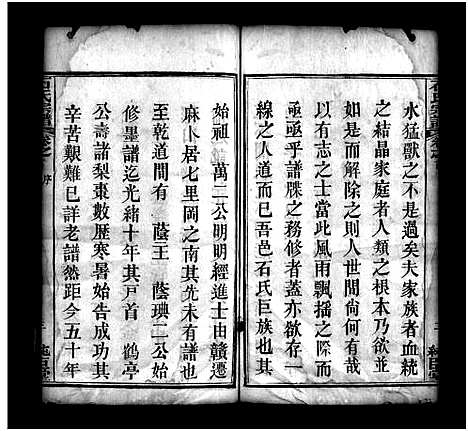 石氏宗譜
水猛獸之不是過矣夫家族者血統
之結晶家庭者人類之根本乃欲並
如是而解除之則人世間尙何有哉
以有志之士當此風雨飄搖之際而
亟亟乎譜牒之務修者蓋亦欲存一
線之人道而已吾邑石氏巨族也其
始祖 萬二公明明經進士由贛遷
麻卜居七里岡之南其先未有譜也
至乾道間有 蔭王 蔭璵二公始
修墨譜迄光緖十年其戸首 鶴亭
公壽諸梨棗數歷寒暑始告成功其
辛苦艱難已詳老譜然距今五十年
石氏宗譜 卷之 序